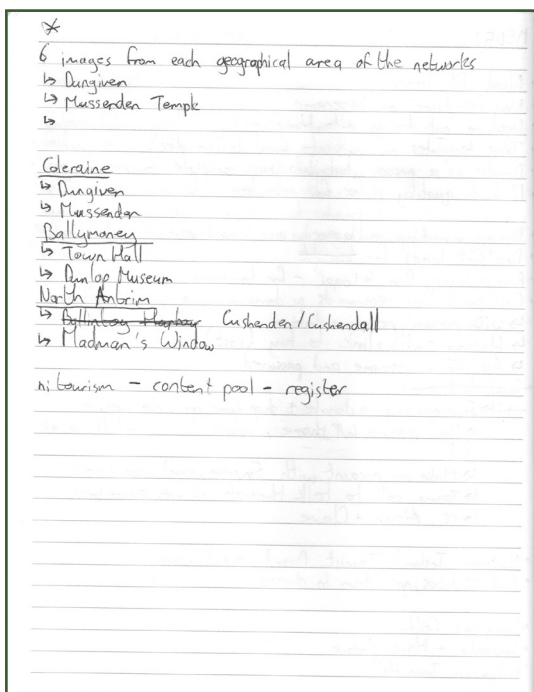 6 images from each geographical area of the networks
↳ Dungiven
↳ Mussenden Temple
↳
Coleraine
↳ Dungiven
↳ Mussenden
Ballymoney
↳ Town Hall
↳ Dunlop Museum
North Antrim
↳ Cushenden/Cushendall
↳ Madman's Window
ni tourism - content pool - register